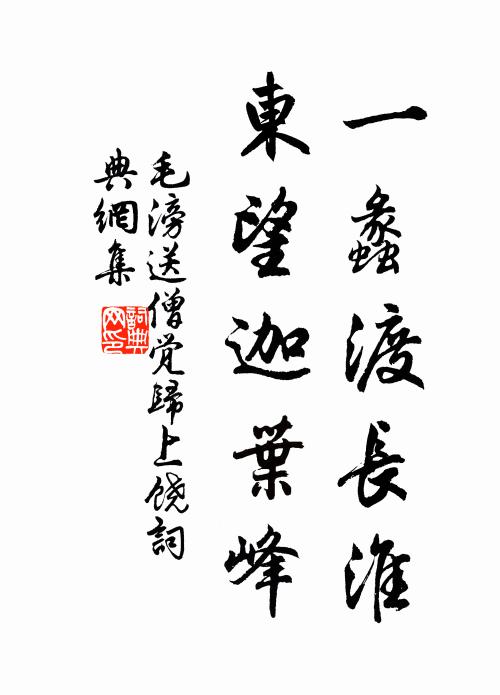 一蠡渡長淮
東望迦葉峰
毛滂送僧觉歸上饶詞
典網集
詞典
网印